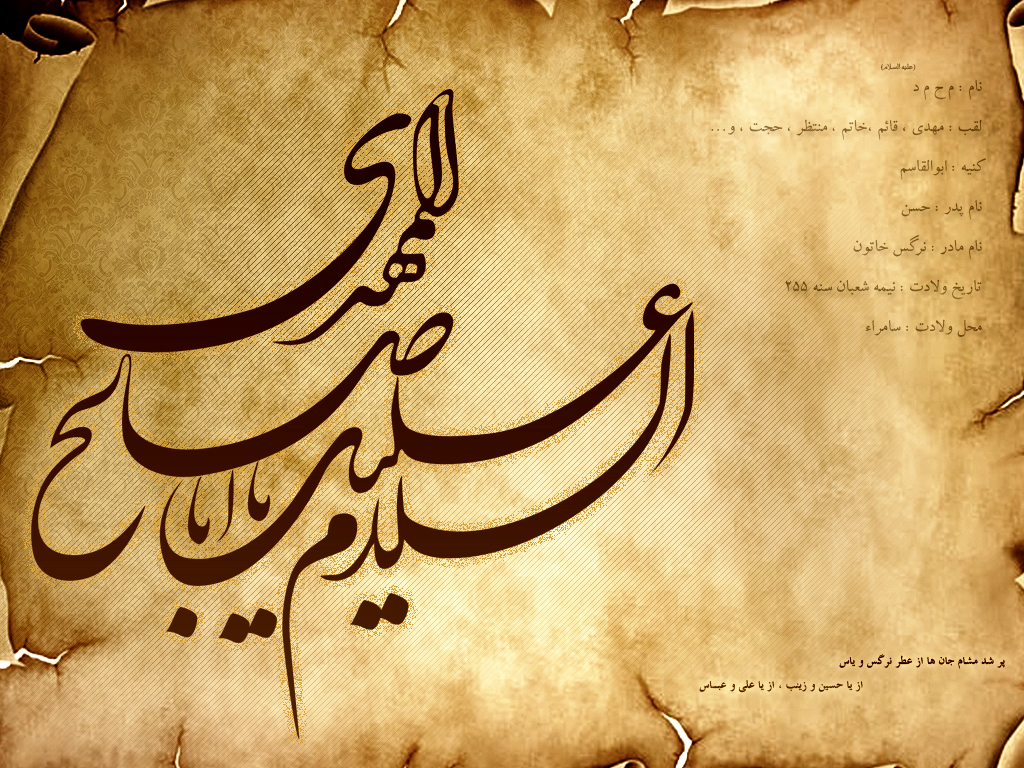 (علیه السلام)
نام : م ح م د
لقب : مهدی ، قائم ،خاتم ، منتظر ، حجت ، و...
کنیه : ابوالقاسم
نام پدر : حسن
نام مادر : نرگس خاتون
تاریخ ولادت : نیمه شعبان سنه ۲۵۵
محل ولادت : سامراء
السلام علیک یا ابا صالح المهدی
پر شد مشام جان ها از عطر نرگس و یاس
از یا حسین و زینب ، از یا علی و عباس